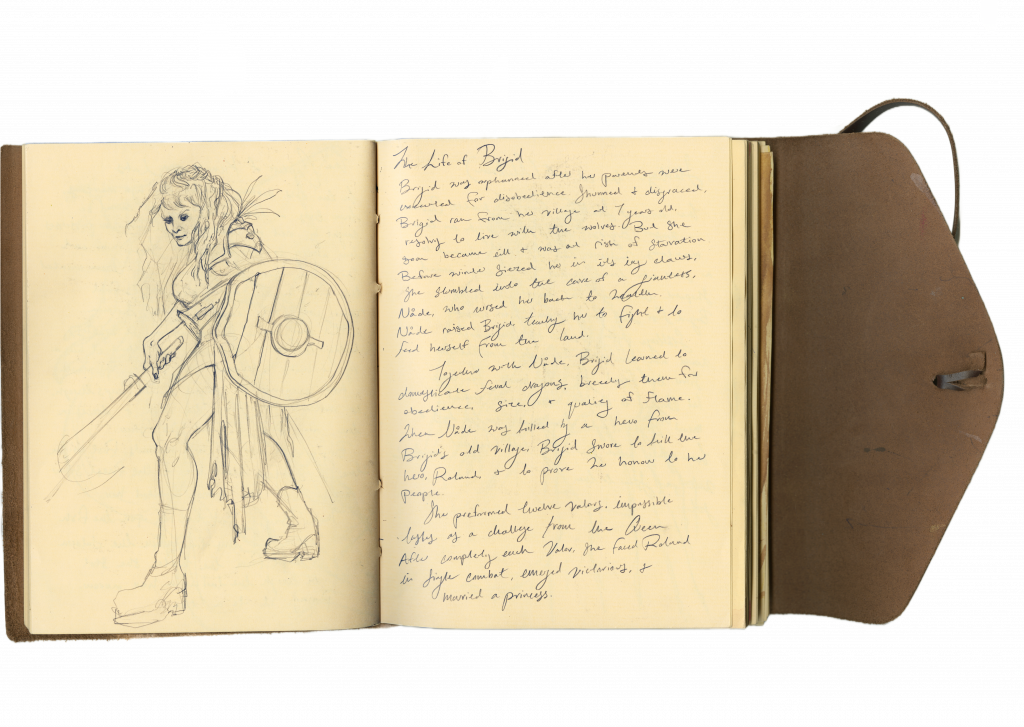 The Life of Brigid
Brigid was orphanned after her parents were
executed for disobedience. Shunned & disgraced,
Brigid ran from her village at 7 years old,
to live with the wolves. But she
soon became ill & was at risk of starvation
Before winter siezed her in its icy claws,
She stumbled into the cave of a giantess,
Nåde, who nursed her back to health.
Nåde raised Brigid, teaching her to fight & to
feed herself from the land.
Together with Nåde, Brigid learned to
domesticate feral dragons, breeding them for
obedience, size, & quality of flame.
When Nåde was killed by a hero from
Brigid's old village, Brigid swore to kill the
hero, Roland, & to prove her honour to her
people.
She preformed twelve valors, impossible
tasks as a challenge from the Queen
After completing each Valor, she faced Roland
in single combat, emerged victorious, &
married a princess.